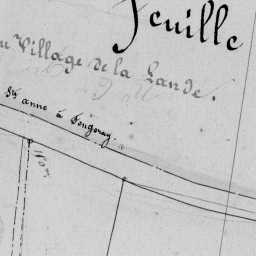 Feuille
du Village de la Lande.
Ste anne à Fougeray.